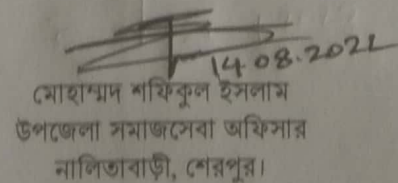 14.08.2022
মোহাম্মদ শফিকুল ইসলাম
উপজেলা সমাজসেবা অফিসার
নালিতাবাড়ী, শেরপুর।